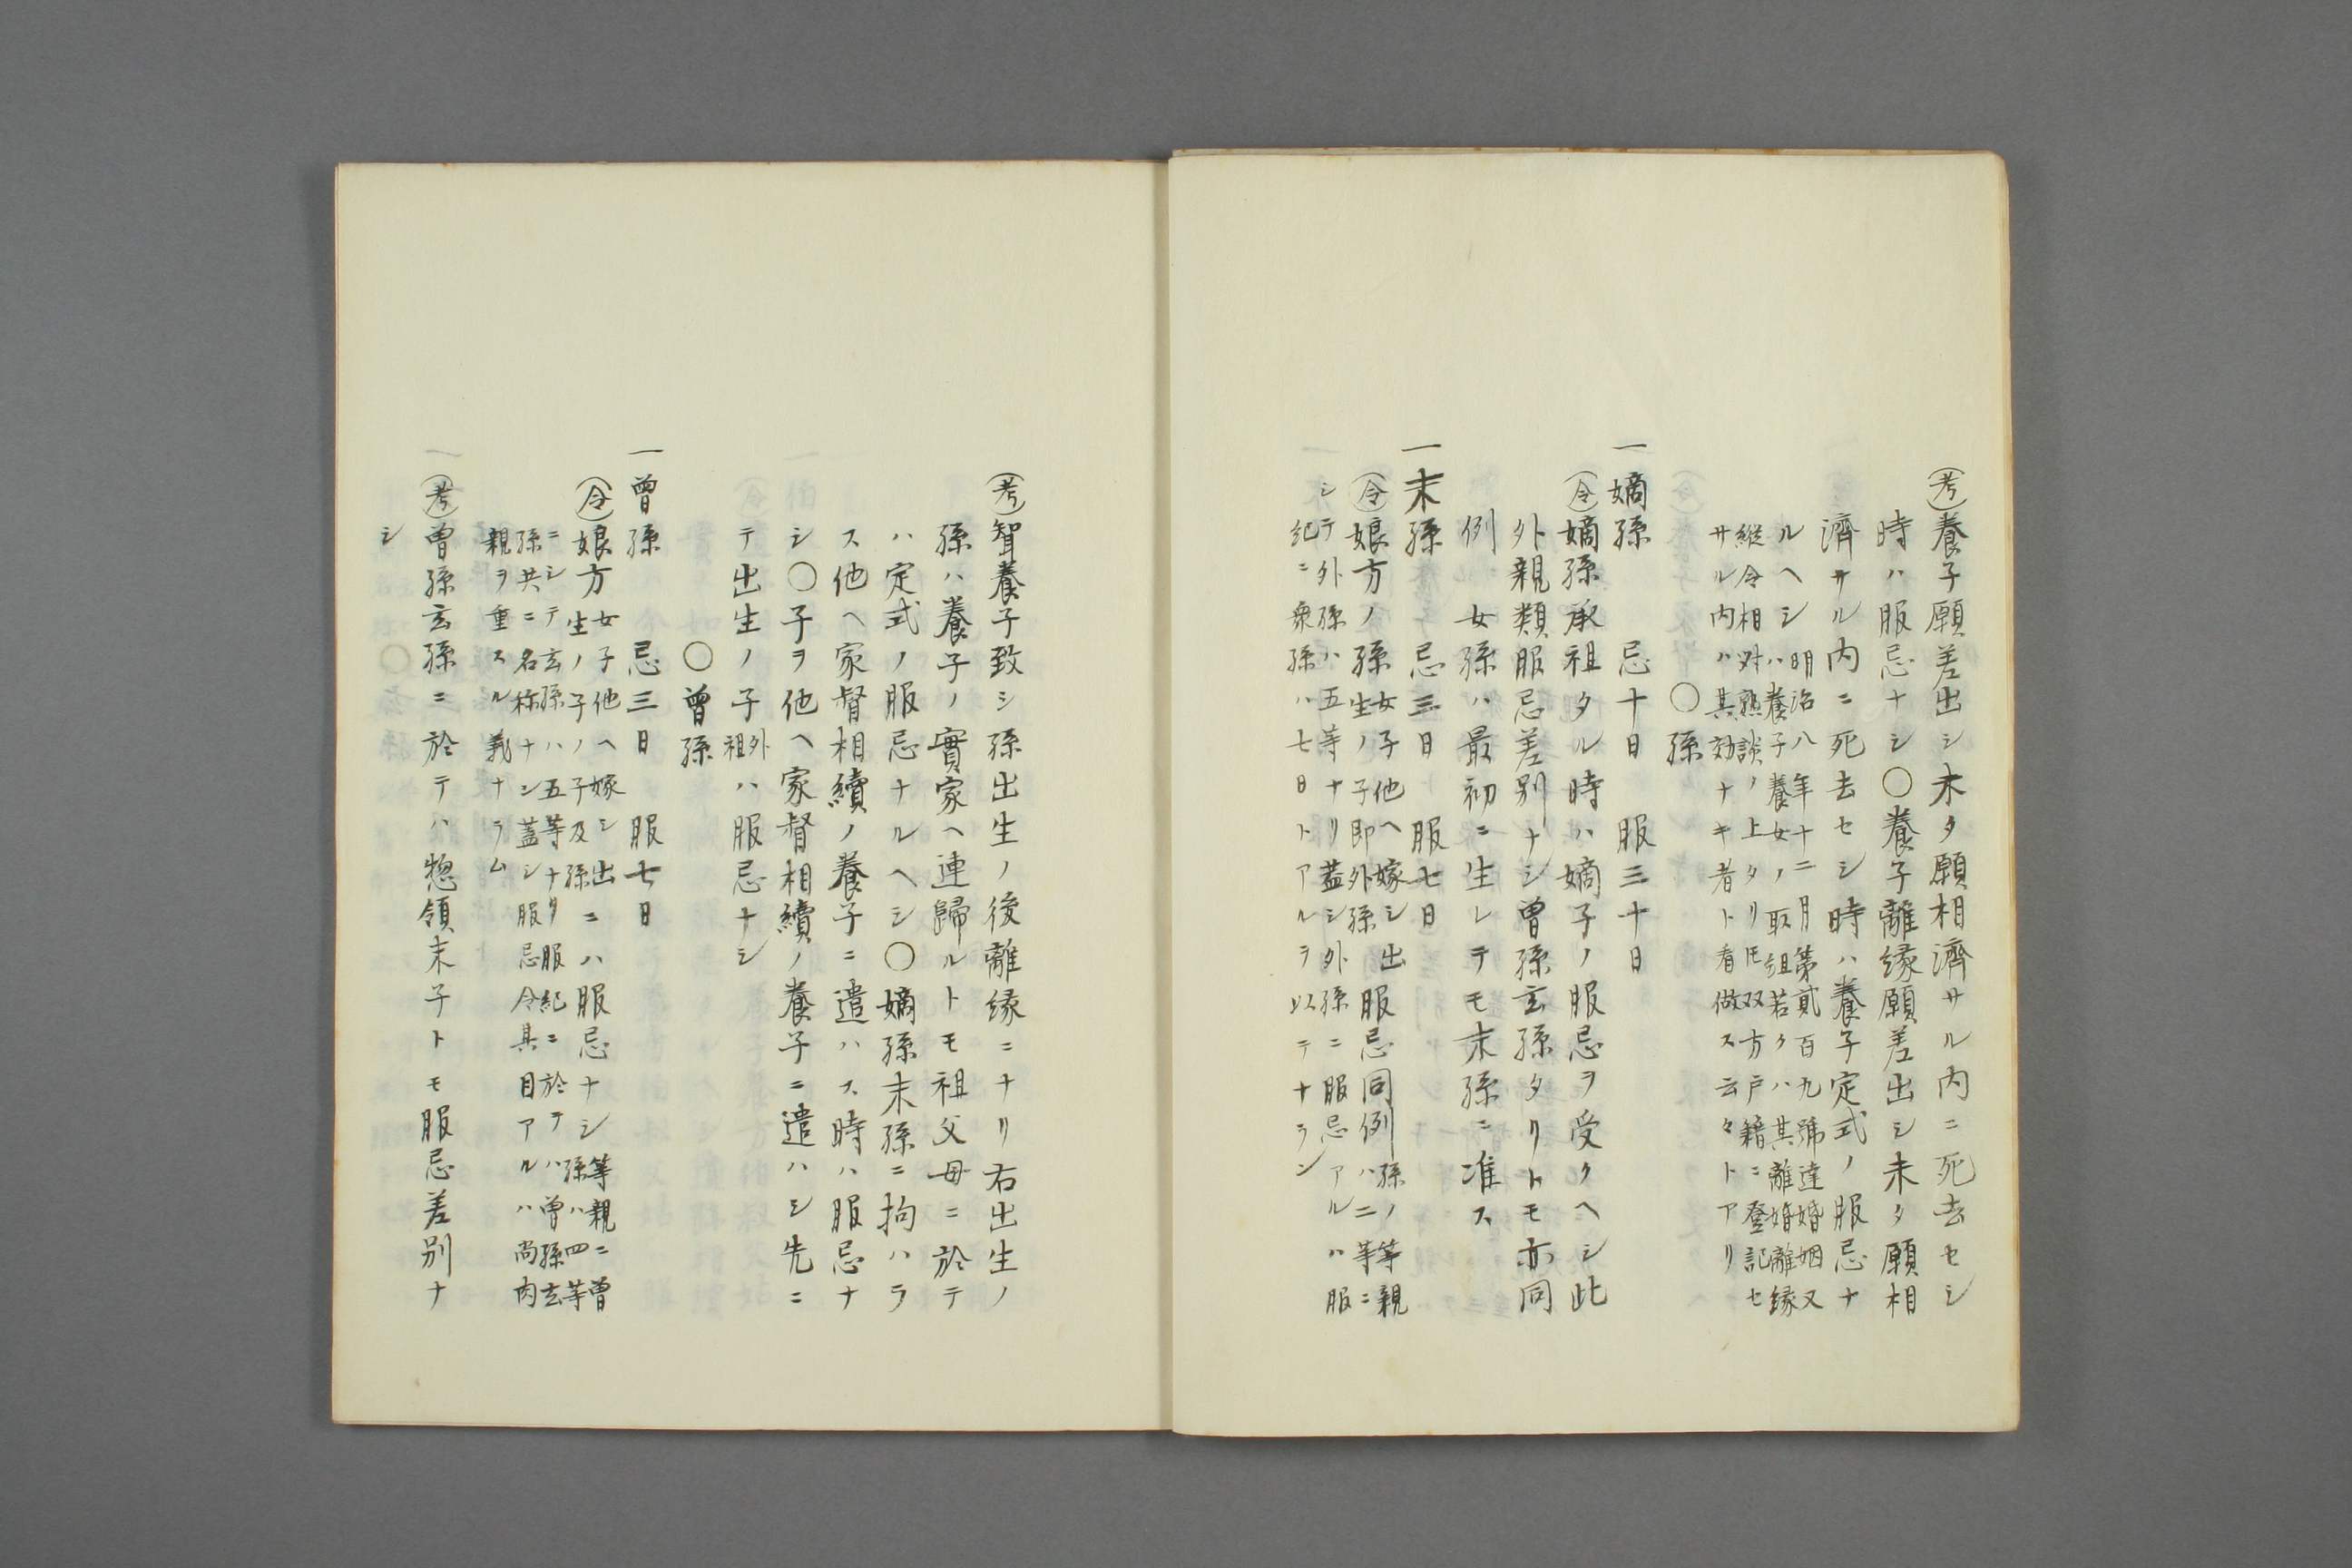 (考)養子願差出シ未タ願相濟サル内ニ死去セシ
時ハ服忌ナシ〇養子離縁願差出シ未タ願相
濟サル内ニ死去セシ時ハ養子定式ノ服忌ナ
ルヘシ
明治八年十二月第貳百九號達婚姻又
ハ養子養女ノ取組若クハ其離婚離縁
縱令相對熟談ノ上タリ𪜈双方戸籍ニ登記セ
サル内ハ其効ナキ者ト看做ス云々トアリ
〇孫
一嫡孫 忌十日 服三十日
(令)嫡孫承祖タル時ハ嫡子ノ服忌ヲ受クヘシ此
外親類服忌差別ナシ曽孫玄孫タリトモ亦同
例 女孫ハ最初ニ生レテモ末孫ニ准ス
一末孫 忌三日 服七日
(令)娘方ノ孫
女子他ヘ嫁シ出
生ノ子即外孫
服忌同例
孫ノ等親
ハ二等ニ
シテ外孫ハ五等ナリ蓋シ外孫ニ服忌アルハ服
紀ニ衆孫ハ七日トアルヲ以テナラン
(考)聟養子致シ孫出生ノ後離縁ニナリ右出生ノ
孫ハ養子ノ實家ヘ連歸ルトモ祖父母ニ於テ
ハ定式ノ服忌ナルヘシ〇嫡孫末孫ニ拘ハラ
ス他ヘ家督相續ノ養子ニ遣ハス時ハ服忌ナ
シ〇子ヲ他ヘ家督相續ノ養子ニ遣ハシ先ニ
テ出生ノ子
外
祖
ハ服忌ナシ
〇曽孫
一曽孫 忌三日 服七日
(令)娘方
女子他ヘ嫁シ出
生ノ子ノ子及孫
ニハ服忌ナシ
等親ニ曽
孫ハ四等
ニシテ玄孫ハ五等ナタ服紀ニ於テハ曽孫玄
孫共ニ名称ナシ蓋シ服忌令其目アルハ尚内
親ヲ重スル義ナラム
(考)曽孫玄孫ニ於テハ惣領末子トモ服忌差別ナ
シ